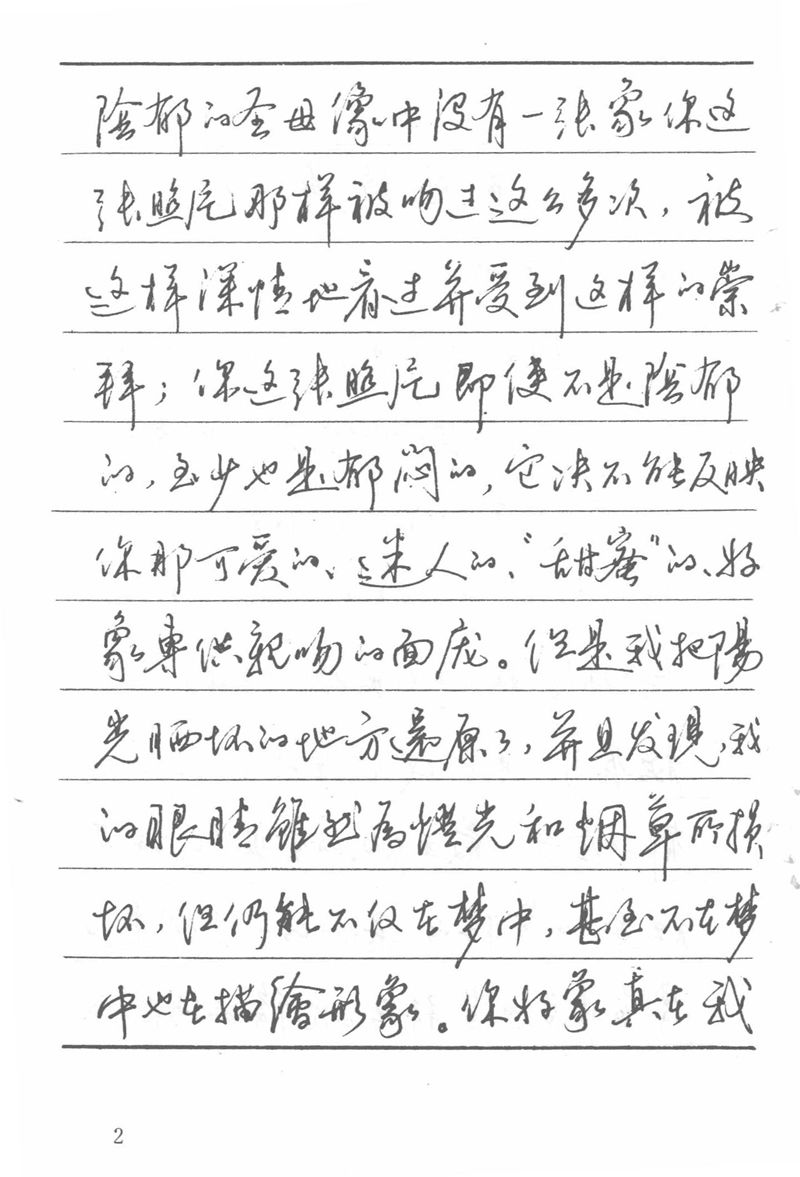 陰郁的圣母像中没有一张象你这
张照片那样被吻过这么多次，被
这样深情地看过并受到这样的崇
拜；你这张照片即使不是陰郁
的，至少也是郁闷的，它决不能反映
你那可爱的、迷人的、“甜蜜”的、好
象專供親吻的面庞。但是我把陽
光晒坏的地方還原了，并且发現，我
的眼睛雖然為燈光和烟草所損
坏，但仍能不仅在梦中，甚至不在梦
中也在描繪形象。你好象真在我
2